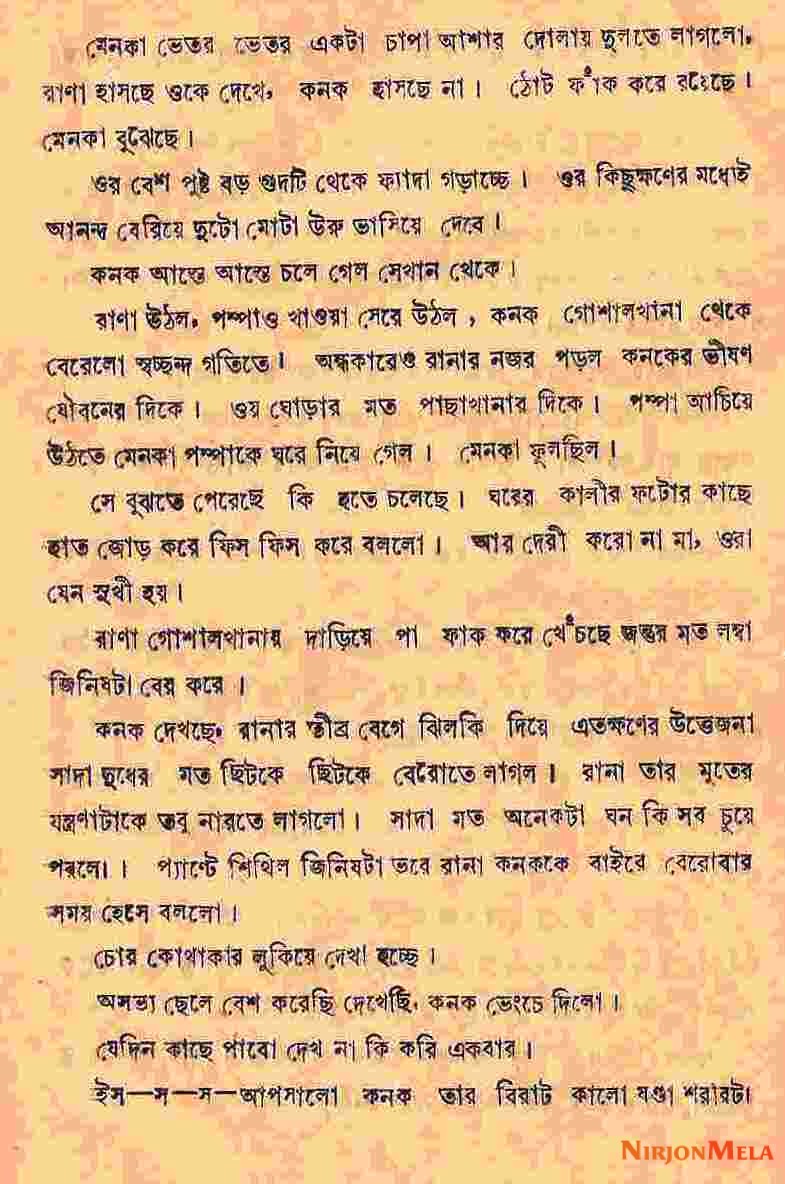 মেনকা ভেতর ভেতর একটা চাপা আশার দোলায় দুলতে লাগলো,
রাণা হাসছে ওকে দেখে, কনক হাসছে না। ঠোট ফাঁক করে রয়েছে।
মেনকা বুঝেছে।
ওর বেশ পুষ্ট বড় গুদটি থেকে ফ্যাদা গড়াচ্ছে। ওর কিছুক্ষণের মধ্যেই
আনন্দ বেরিয়ে দুটো মোটা উরু ভাসিয়ে দেবে।
কনক আস্তে আস্তে চলে গেল সেখান থেকে।
রাণা উঠল, পম্পাও খাওয়া সেরে উঠল, কনক গোশালখানা থেকে
বেরেলো স্বচ্ছন্দ গতিতে। অন্ধকারেও রানার নজর পড়ল কনকের ভীষণ
যৌবনের দিকে। ওর ঘোড়ার মত পাছাখানার দিকে। পম্পা আচিয়ে
উঠতে মেনকা পম্পাকে ঘরে নিয়ে গেল। মেনকা ফুলছিল।
সে বুঝতে পেরেছে কি হতে চলেছে। ঘরের কালীর ফটোর কাছে
হাত জোড় করে ফিস ফিস করে বললো। আর দেরী করো না মা, ওরা
যেন সুখী হয়।
রাণা গোশালখানায় দাড়িয়ে পা ফাক করে খেঁচছে জন্তুর মত লম্বা
জিনিষটা বের করে।
কনক দেখছে, রানার তীব্র বেগে ঝিলকি দিয়ে এতক্ষণের উত্তেজনা
সাদা দুধের মত ছিটকে ছিটকে বেরোতে লাগল। রানা তার মুতের
যন্ত্রণাটাকে তবু নারতে লাগলো। সাদা মত অনেকটা ঘন কি সব চুয়ে
পরলো। প্যাণ্টে শিথিল জিনিষটা ভরে রানা কনককে বাইরে বেরোবার
সময় হেসে বললো।
চোর কোথাকার লুকিয়ে দেখা হচ্ছে।
অসভ্য ছেলে বেশ করেছি দেখেছি, কনক ভেংচে দিলো।
যেদিন কাছে পাবো দেখ না কি করি একবার।
ইস—স—স—আপসালো কনক তার বিরাট কালো ষণ্ডা শরারটা
NIRJONMELA